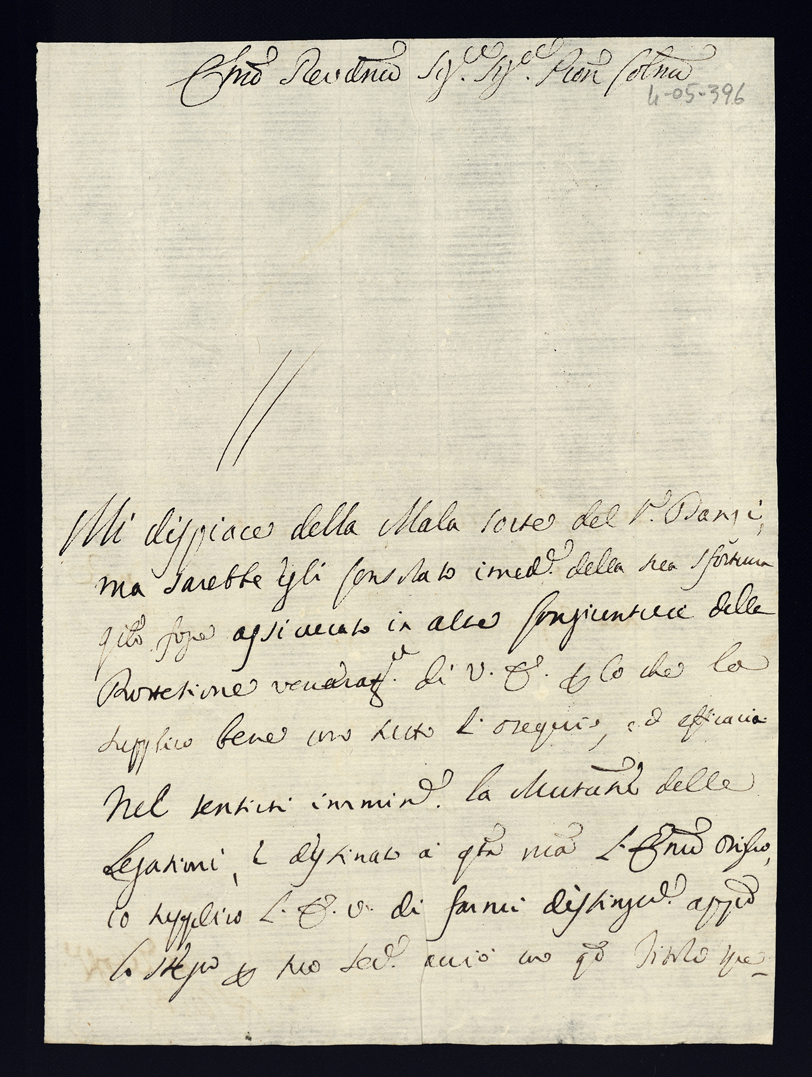 Emõ Revdmõ Sig.re Sig.re Pron Colmõ
4-05-396
Mi dispiace della Mala sorte del S.r Danzi,
ma sarebbe egli Consolato imed.e della sua sfortuna
q.to fosse assicurato in altre Congiunture della
Protetione di V. E. lo che la
supplico bene con tutto l'ossequio, ed efficacia
Nel sentirsi immin.e la Mutatne delle
Legationi, è destinato à qta l'Emõ
io supplico l'E. V. di farmi distinguere appõ
lo stesso suo Ser.e acciò con qõ Titolo